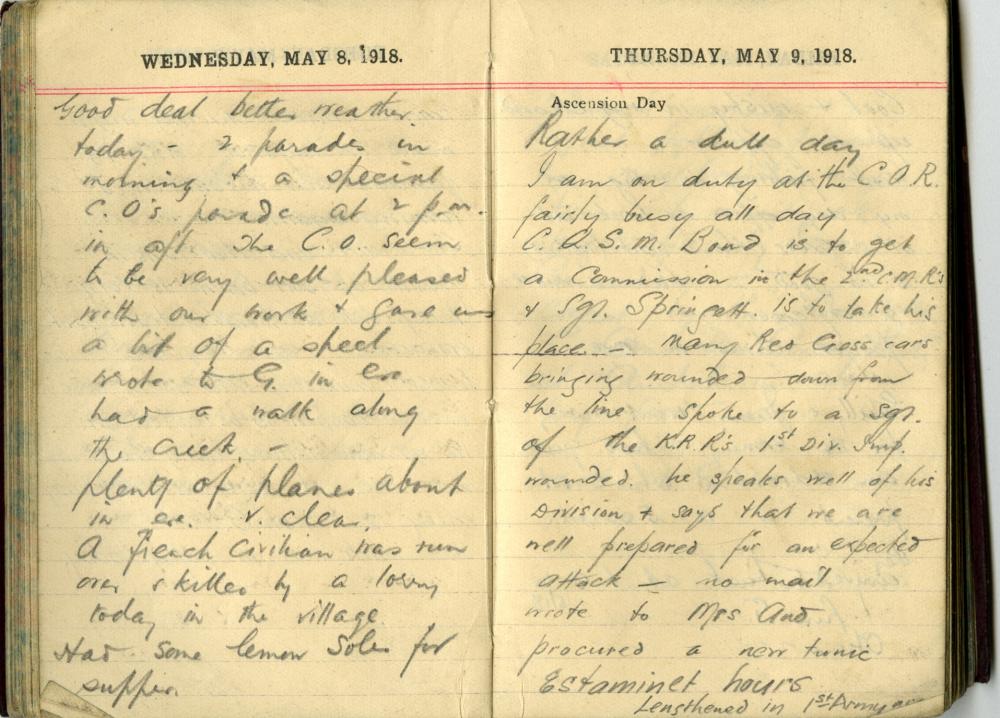 WEDNESDAY, MAY 8, 1918.
Good deal better weather
today - 2 parades in
morning & a special
C.O's parade at 2 p.m.
in aft. The C.O. seem
to be very well pleased
with our work & gave us
a bit of a speel
wrote to G. in eve
had a walk along
the creek. -
plenty of planes about
in eve. v. clear.
A french civilian was run
over & killed by a lorry
today in the village
Had some lemon soles for
supper.
THURSDAY, MAY 9, 1918.
Ascension Day
Rather a dull day
I am on duty at the C.O.R.
fairly busy all day
C.Q.S.M. Bond is to get
a Commission in the 2nd C.M.R's
& Sgt. Springett. is to take his
place - Many Red Cross cars
bringing wounded down from
the line spoke to a Sgt.
of the K.R.R's 1st Div. Imp.
wounded. he speaks well of his
Division & says that we are
well prepared for an expected
attack - no mail
wrote to Mrs And
procured a new tunic
Estaminet hours
Lengthened in 1st Army